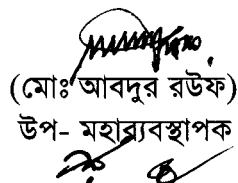 (মোঃ আবদুর রউফ)
উপ- মহাব্যবস্থাপক